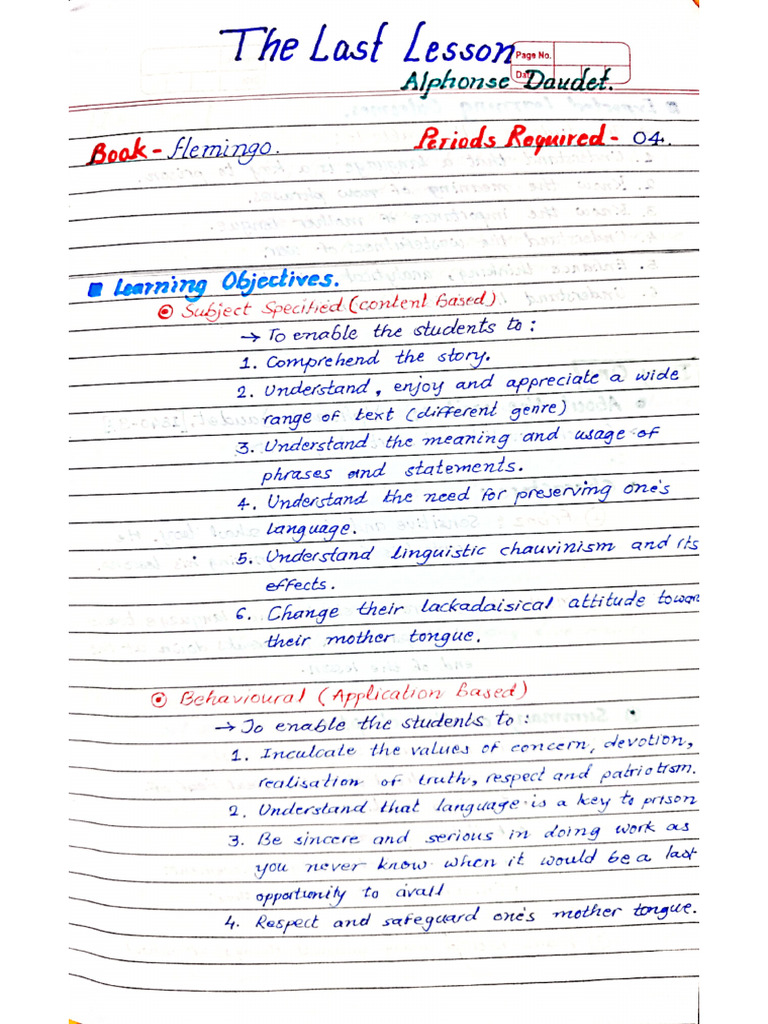 The Last Lesson
Page No.
Alphonse Daudet.
Book - flemingo.
Periods Required - 04.
Learning Objectives.
Subject Specified (content based)
→ To enable the students to :
1. Comprehend the story.
2. Understand, enjoy and appreciate a wide
range of text (different genre)
3. Understand the meaning and usage of
phrases and statements.
4. Understand the need for preserving one's
language.
5. Understand linguistic chauvinism and its
effects.
6. Change their lackadaisical attitude towar
their mother tongue.
Behavioural (Application based)
→ To enable the students to :
1. Inculcate the values of concern, devotion,
realisation of truth, respect and patriotism.
2. Understand that language is a key to prison
3. Be sincere and serious in doing work as
you never know when it would be a last
opportunity to avail
4. Respect and safeguard one's mother tongue.